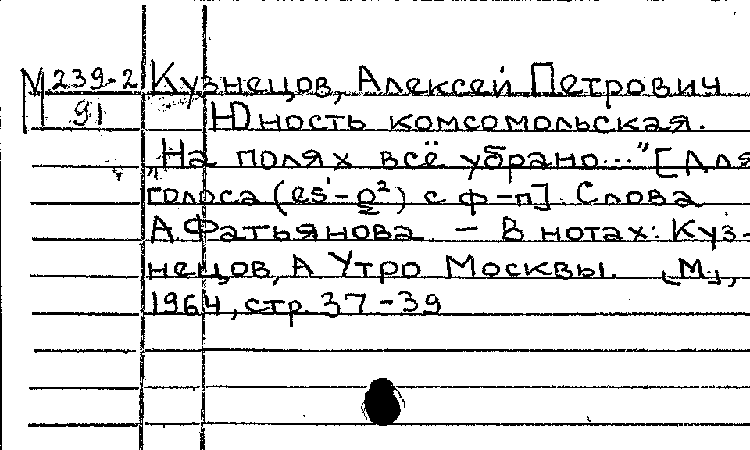 М 239-2 Кузнецов, Алексей Петрович
91 Юность комсомольская.
„На полях всё убрано..." [Для
голоса (es¹-g²) с ф-п]. Слова
А. Фатьянова – В нотах: Куз-
нецов, А Утро Москвы. [М],
1964, стр. 37-39